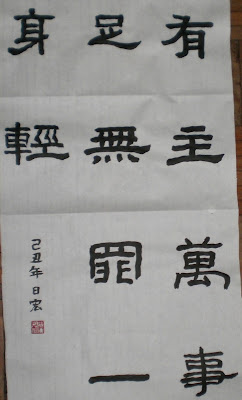 有主萬事
足無罪一
身輕
己丑年日宏